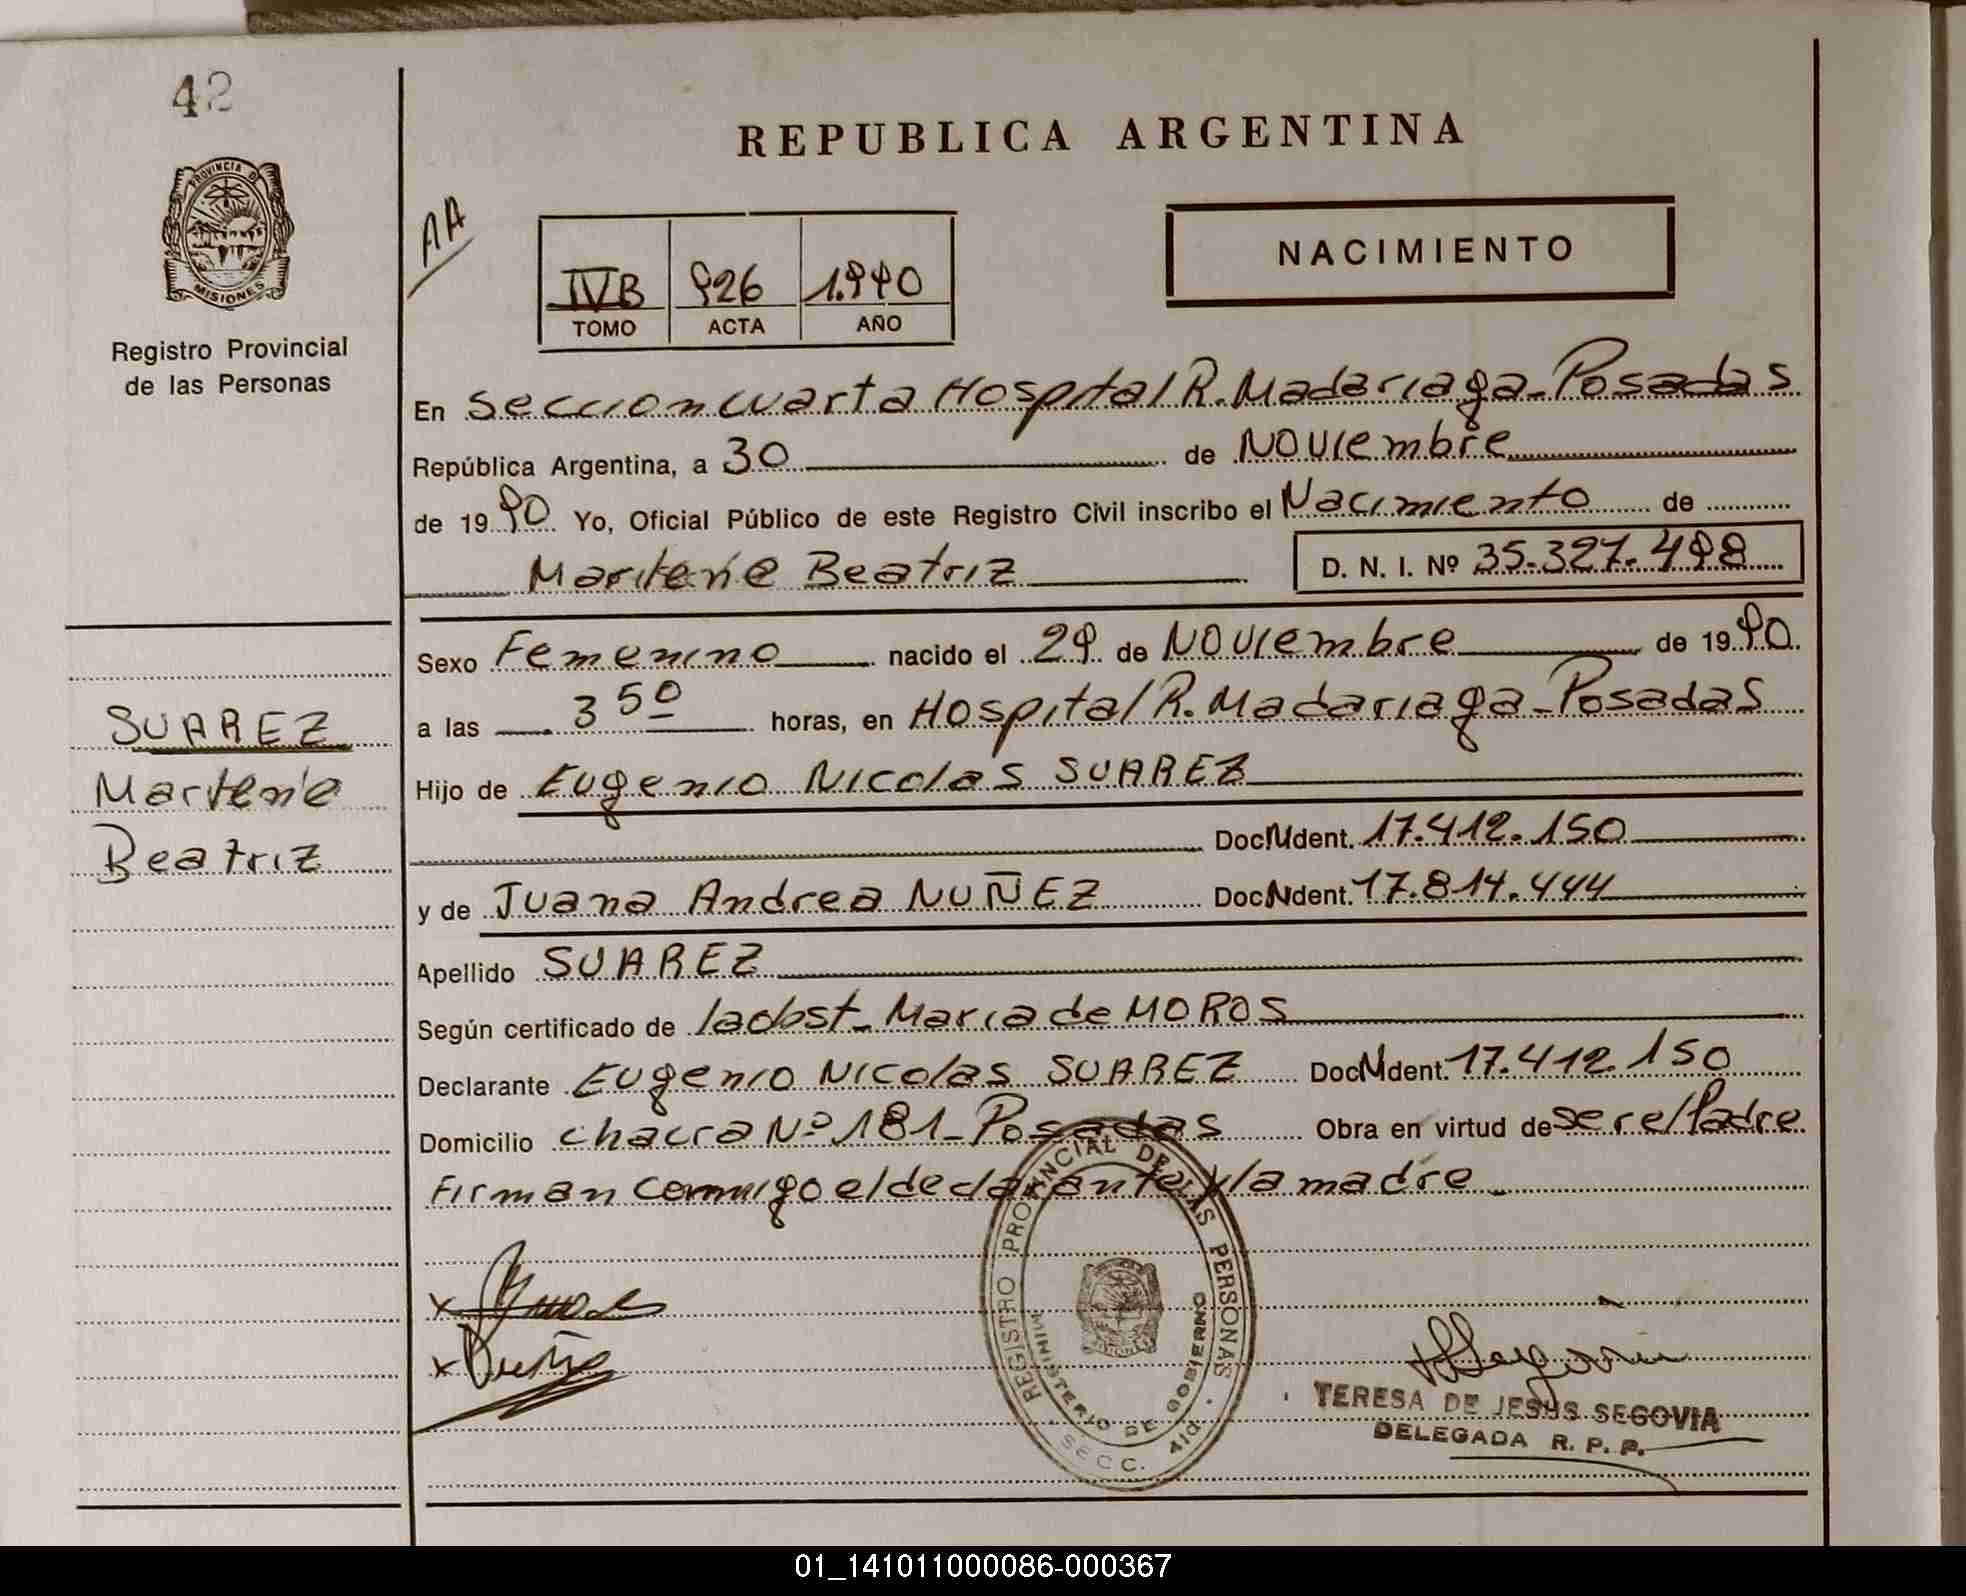 42
PROVINCIA DE
MISIONES
Registro Provincial
de las Personas
REPUBLICA ARGENTINA
AA
NACIMIENTO
IVB 926 1.990
TOMO ACTA AÑO
En Seccion cuarta Hospital R. Madariaga - Posadas
República Argentina, a 30 de Noviembre
de 1990 Yo, Oficial Público de este Registro Civil inscribo el Nacimiento de
Beatriz D. N. I. Nº 35.327.498
Sexo Femenino nacido el 29 de Noviembre de 1990.
a las 3 50 horas, en Hospital R. Madariaga - Posadas
Hijo de Eugenio Nicolas SUAREZ
Doc N Ident. 17.412.150
y de Juana Andrea NUÑEZ Doc N Ident. 17.814.444
Apellido SUAREZ
Según certificado de la obst. Maria de MOROS
Declarante Eugenio Nicolas SUAREZ Doc N Ident. 17.412.150
Domicilio chacra Nº 181 - Posadas Obra en virtud de ser el Padre
Firman conmigo el declarante y la madre
SUAREZ
Beatriz
REGISTRO PROVINCIAL DE LAS PERSONAS
MINISTERIO DE GOBIERNO
SECC. 4ta.
TERESA DE JESUS SEGOVIA
DELEGADA R. P. P.
01_141011000086-000367